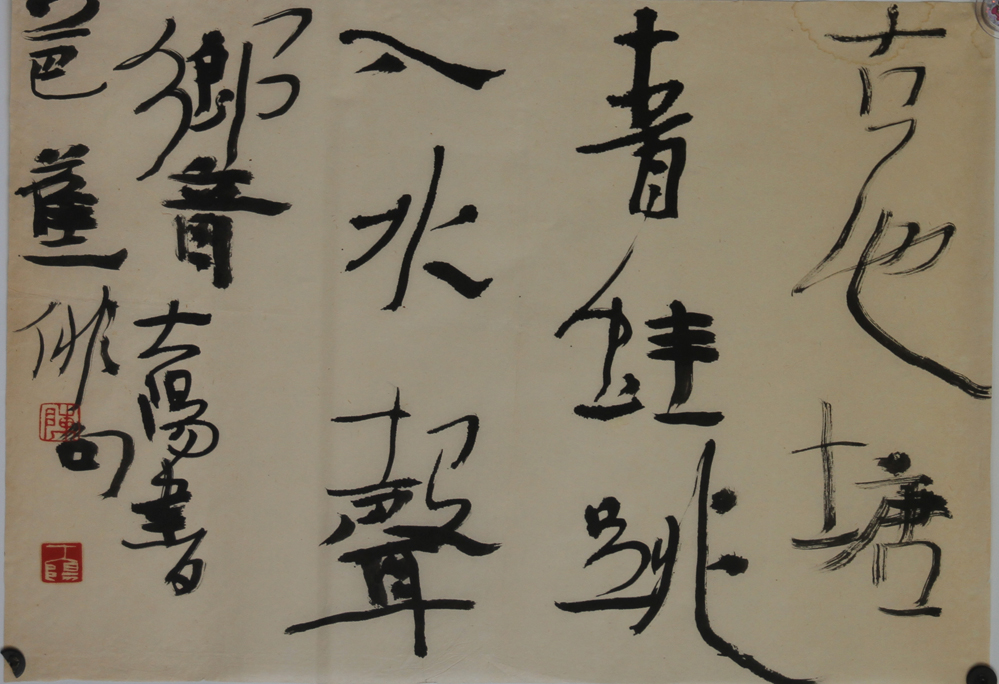 古池塘
青蛙跳
入水聲
響 大陽書
芭蕉俳句